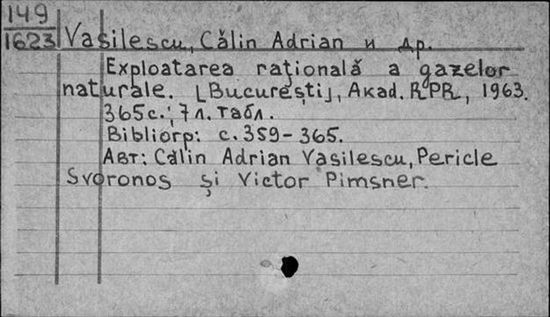 149
1623
Vasilescu, Călin Adrian и др.
Exploatarea raţională a gazelor
naturale. [Bucureşti], Akad. RPR, 1963.
365с.; 7л. табл.
Bibliогр: с. 359-365.
Авт: Călin Adrian Vasilescu, Pericle
Svoronos şi Victor Pimsner.